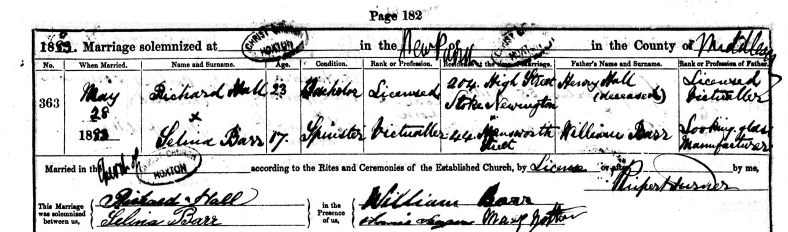 Page 182
188 . Marriage solemnized at CHRIST CHURCH HOXTON in the New in the County of Middlesex
No. When Married. Name and Surname. Age. Condition. Rank or Profession. Residence at the time of Marriage. Father's Name and Surname. Rank or Profession of Father.
363 May 28 188 Richard Hall 23 Bachelor Licensed Victualler 204 High Street Stoke Newington Henry Hall (deceased) Licensed Victualler
Selina Barr 17. Spinster 44 Street William Barr Looking glass Manufacturer
Married in the Church of CHRIST CHURCH HOXTON according to the Rites and Ceremonies of the Established Church, by License or after by me,
Rupert Turner
This Marriage was solemnized between us, Richard Hall in the Presence of us, William Barr
Selina Barr Mary